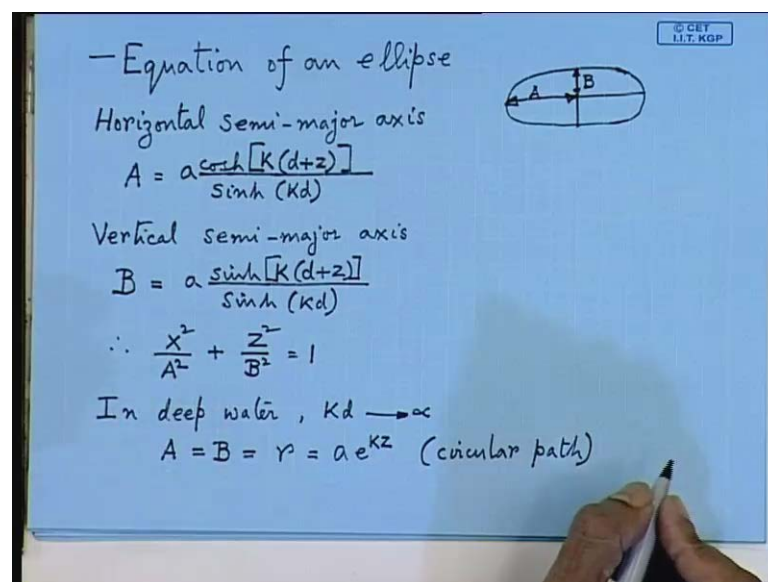 © CET
I.I.T. KGP
— Equation of an ellipse
A B
Horizontal semi-major axis
A = a cosh[K(d+z)] / Sinh (Kd)
Vertical semi-major axis
B = a sinh[K(d+z)] / Sinh (Kd)
∴ X²/A² + Z²/B² = 1
In deep water, Kd → ∝
A = B = r = a e^{KZ} (circular path)